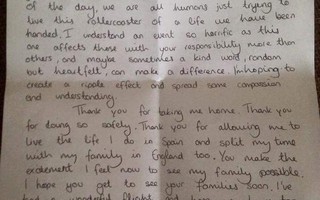 of the day, we are all humans just trying to
live this rollercoaster of a life we have been
handed. I understand an event so horrific as this
one affects those with your responsibility more than
others, and maybe sometimes a kind word, random
but heartfelt, can make a difference. Im hoping to
create a ripple effect and spread some compassion
and understanding.
Thank you for taking me home. Thank you
for doing so safely. Thank you for allowing me to
live the life I do in Spain and split my time
with my family in England too. You make the
excitement I feel now to see my family possible.
I hope you get to see your families soon. I've
had a wonderful flight and